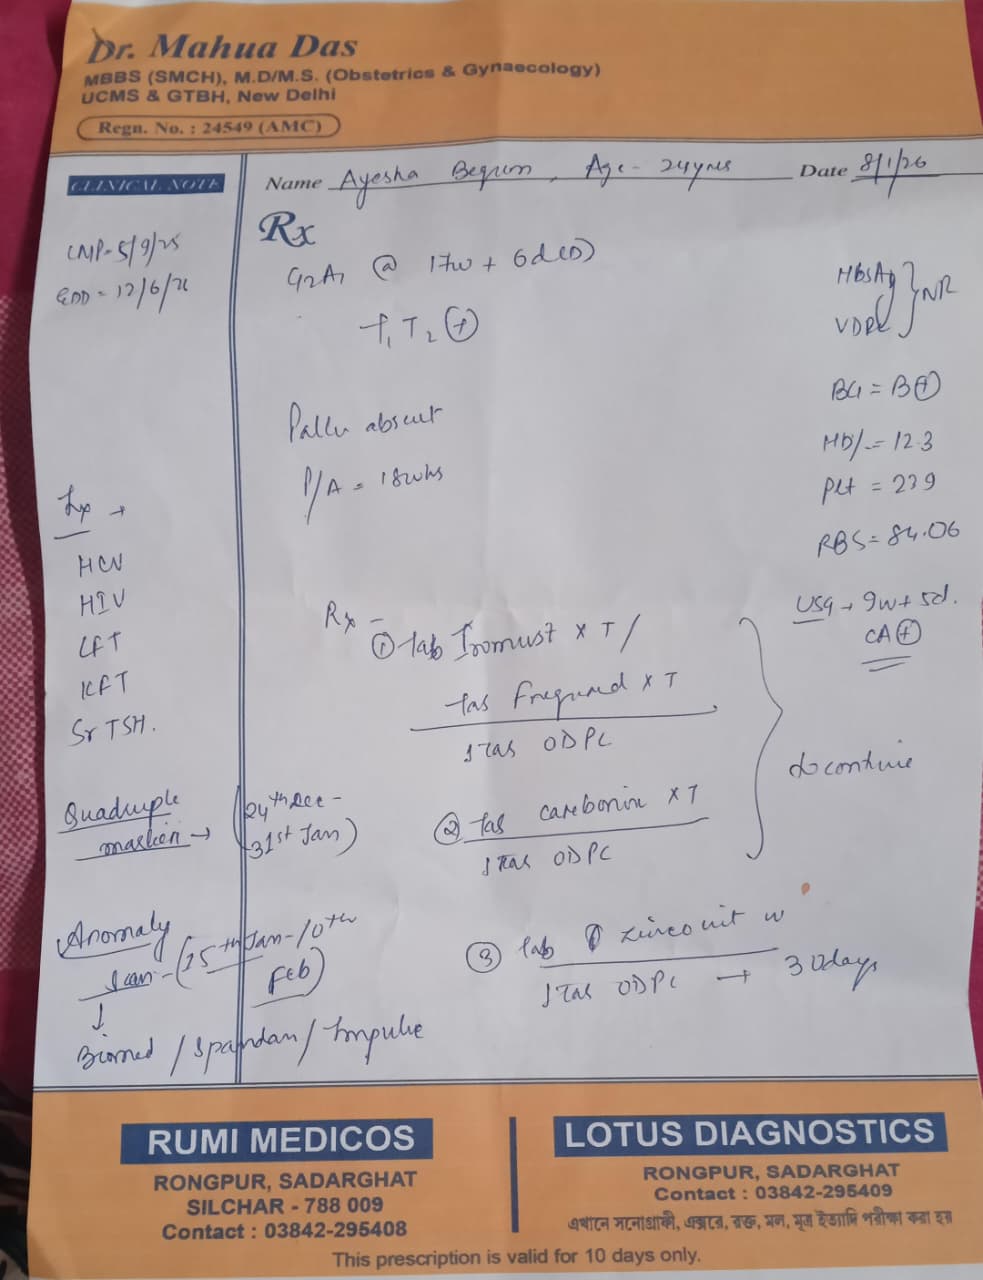 Dr. Mahua Das
MBBS (SMCH), M.D/M.S. (Obstetrics & Gynaecology)
UCMS & GTBH, New Delhi
Regn. No. : 24549 (AMC)
CLINICAL NOTE
Name Ayesha Begum, Age - 24yrs Date 8/1/26
LMP - 5/9/25
EDD = 12/6/26
Rx
G2A1 @ 17w + 6d
T2 +
Pallor absent
P/A = 18wks
HBsAg
VDRL } NR
BG = B+
Hb/. = 12.3
Plt = 239
RBS = 84.06
USG → 9w + 5d.
CA +
HCV
HIV
LFT
KFT
Sr TSH.
Quadruple
marker → (24th Dec -
31st Jan)
Anomaly
scan - (15th Jan - 10th
Feb)
↓
Biomed / Spandan / Impulse
Rx -
① tab x T /
tab x T
1 tab ODPC
② Tab x T
1 tab ODPC
} to continue
③ tab
1 tab ODPC → 30days
RUMI MEDICOS
RONGPUR, SADARGHAT
SILCHAR - 788 009
Contact : 03842-295408
LOTUS DIAGNOSTICS
RONGPUR, SADARGHAT
Contact : 03842-295409
এখানে সনোগ্রাফী, এক্সরে, রক্ত, মল, মূত্র ইত্যাদি পরীক্ষা করা হয়
This prescription is valid for 10 days only.